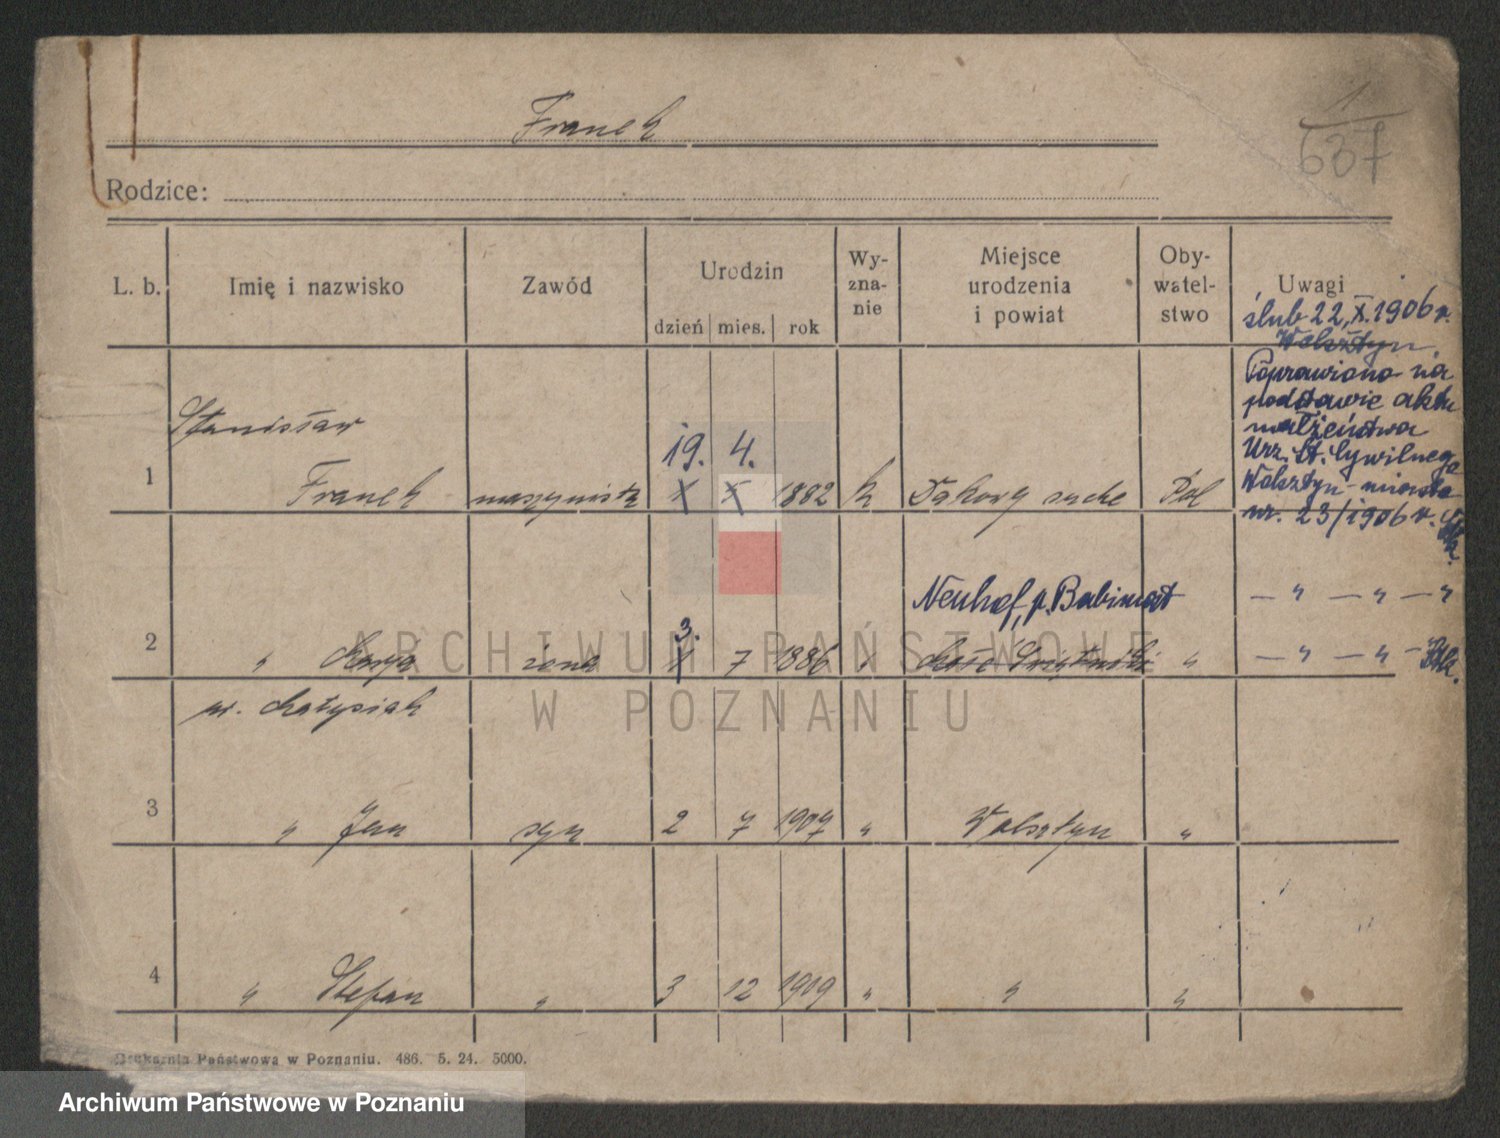 Franek
1
637
Rodzice:
L. b.
Imię i nazwisko
Zawód
Urodzin
dzień mies. rok
Wy-
zna-
nie
Miejsce
urodzenia
i powiat
Oby-
watel-
stwo
Uwagi
ślub 22, X. 1906 r.
Wolsztyn.
Poprawiono na
podstawie aktu
małżeństwa
Urz. St. Cywilnego
Wolsztyn-miasto
nr. 23/1906 r.
Stanisław
19. 4.
1 Franek maszynista X X 1882 k Dakowy suche Pol
Neuhof, p. Babimost
3.
2 " Marya żona 1 7 1886 " " 
— " — " — "
— " — " —
ur. Matysiak
3 " Jan syn 2 7 1907 " Wolsztyn "
4 " Stefan " 3 12 1909 " " "
Drukarnia Państwowa w Poznaniu. 486. 5. 24. 5000.
ARCHIWUM PAŃSTWOWE
W POZNANIU
Archiwum Państwowe w Poznaniu